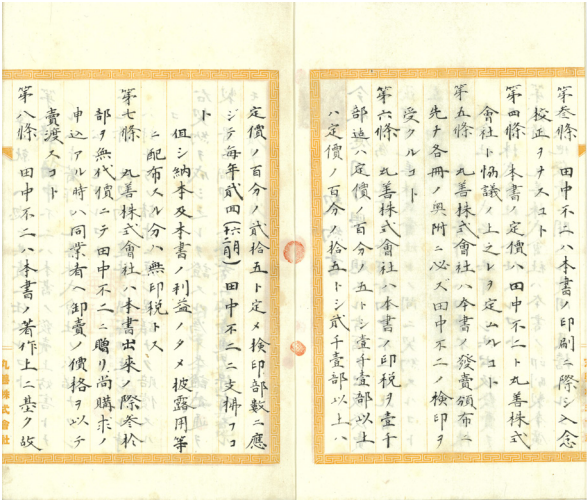 第叁條　田中不二ハ本書ノ印刷ニ際シ入念
校正ヲナスコト
第四條　本書ノ定價ハ田中不二ト丸善株式
會社ト協議ノ上之レヲ定ムルコト
第五條　丸善株式會社ハ本書ノ發賣頒布ニ
先チ各冊ノ奥附ニ必ス田中不二ノ検印ヲ
受クルコト
第六條　丸善株式會社ハ本書ノ印税ヲ壹千
部迠ハ定價ノ百分ノ五トシ壹千壹部以上
ハ定價ノ百分ノ拾五トシ貳千壹部以上ハ
定價ノ百分ノ貳拾五ト定メ検印部数ニ應
シテ毎年貳回(六、十二月)田中不二ニ支拂フコ
ト
但シ納本及本書ノ利益ノタメ披露用等
ニ配布スル分ハ無印税トス
第七條　丸善株式會社ハ本書出來ノ際叁拾
部ヲ無代價ニテ田中不二ニ贈リ尚購求ノ
申込アル時ハ同業者ヘ卸賣ノ價格ヲ以テ
賣渡スコト
第八條　田中不二ハ本書ノ著作上ニ基ク故
丸善株式會社